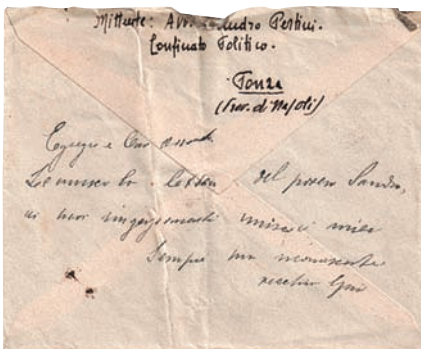 Mittente: Avv. Sandro Pertini.
Confinato Politico.
Ponza
(Prov. di Napoli)
Egregio e Caro
Le unisco la lettera del povero Sandro,
ai suoi ringraziamenti unisco i miei
Sempre sua riconoscente